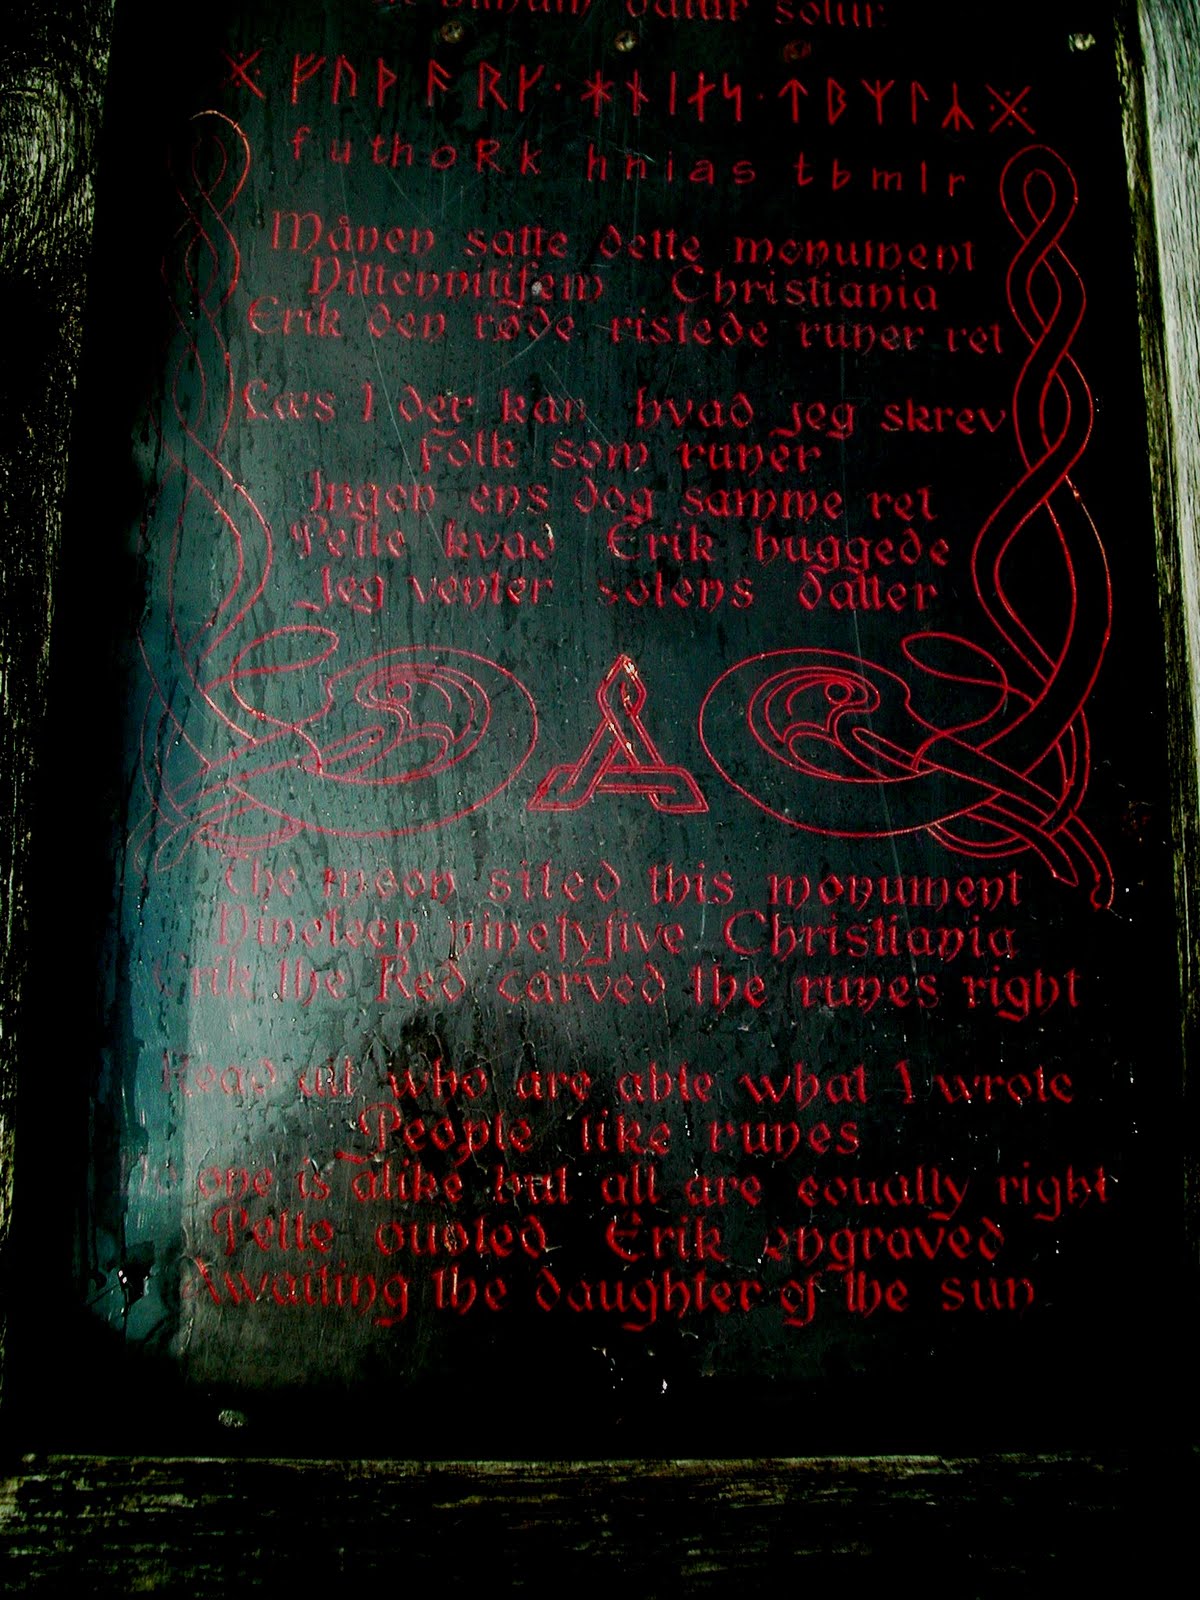 datur solur
※ ᚠᚢᚦᚨᚱᚴ · ᚼᚾᛁᛅᛋ · ᛏᛒᛘᛚᛦ ※
f u th o R k h n i a s t b m l r
Månen satte dette monument
Nittennitifem Christiania
Erik den røde ristede runer ret
Læs I der kan hvad jeg skrev
Folk som runer
Ingen ens dog samme ret
Pelle kvad Erik huggede
Jeg venter solens datter
The moon sited this monument
Nineteen ninetyfive Christiania
Erik the Red carved the runes right
Read all who are able what I wrote
People like runes
one is alike but all are equally right
Pelle quoted Erik engraved
Awaiting the daughter of the sun